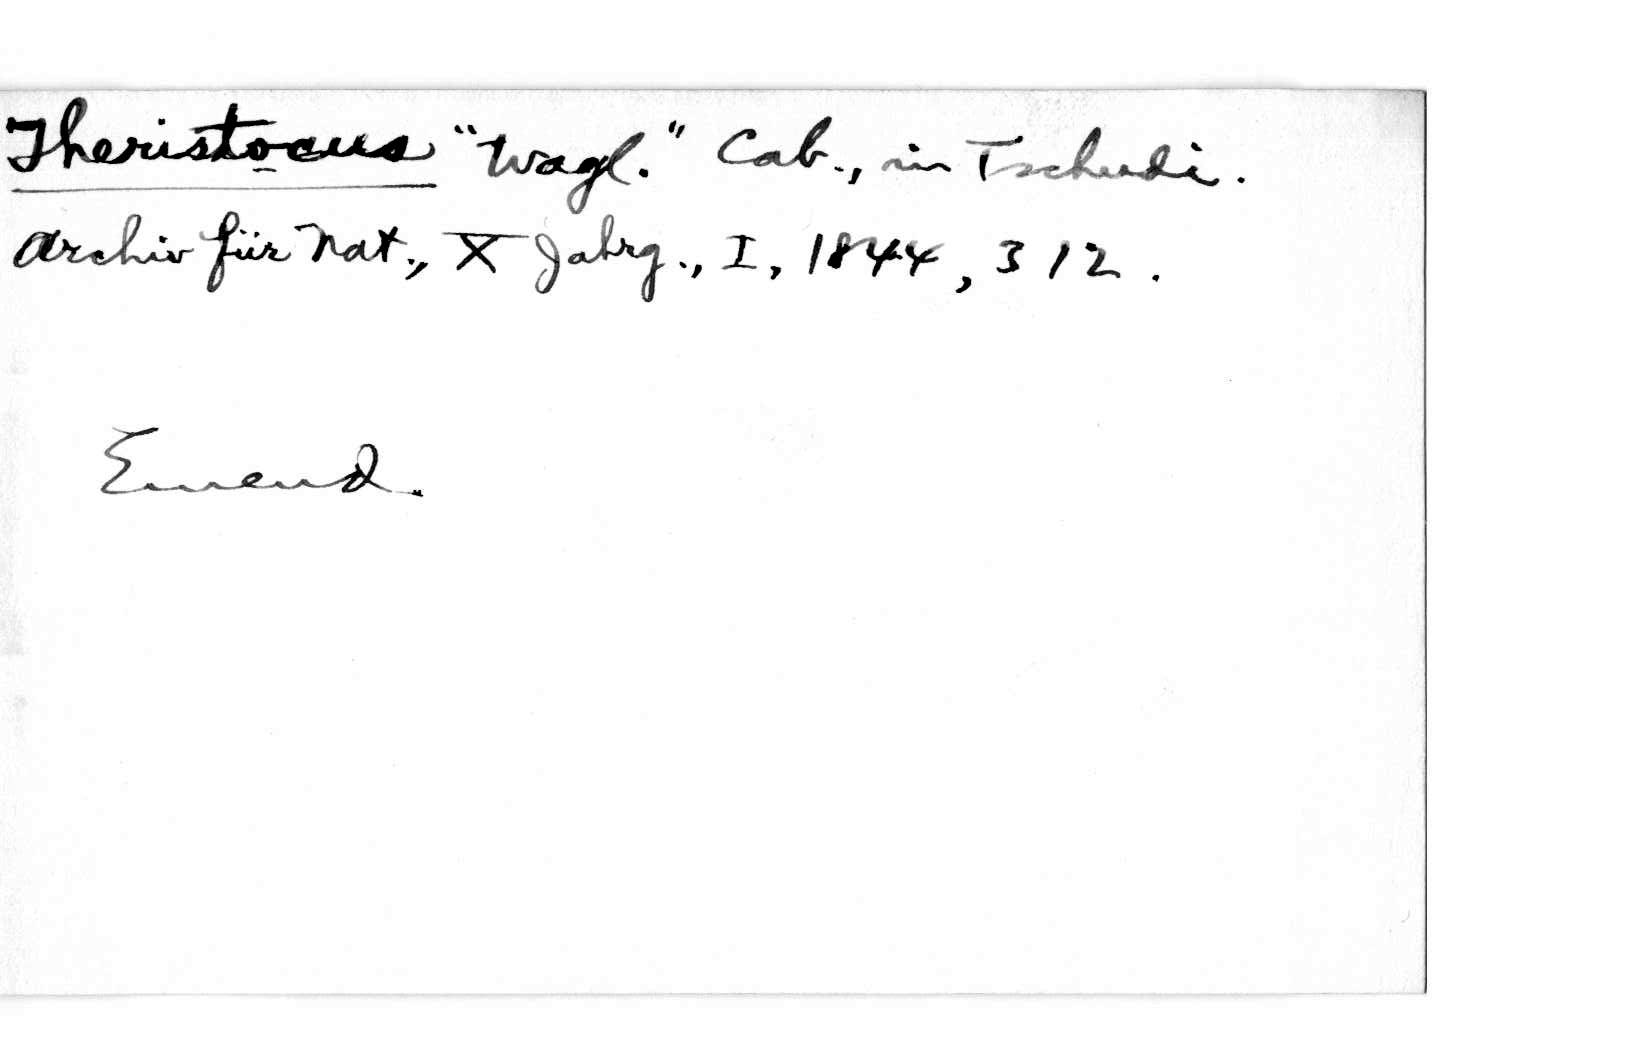 Theristocus "Wagl." Cab., in Tschudi.
Archiv für Nat., X Jahrg., I, 1844, 312.
Emend.